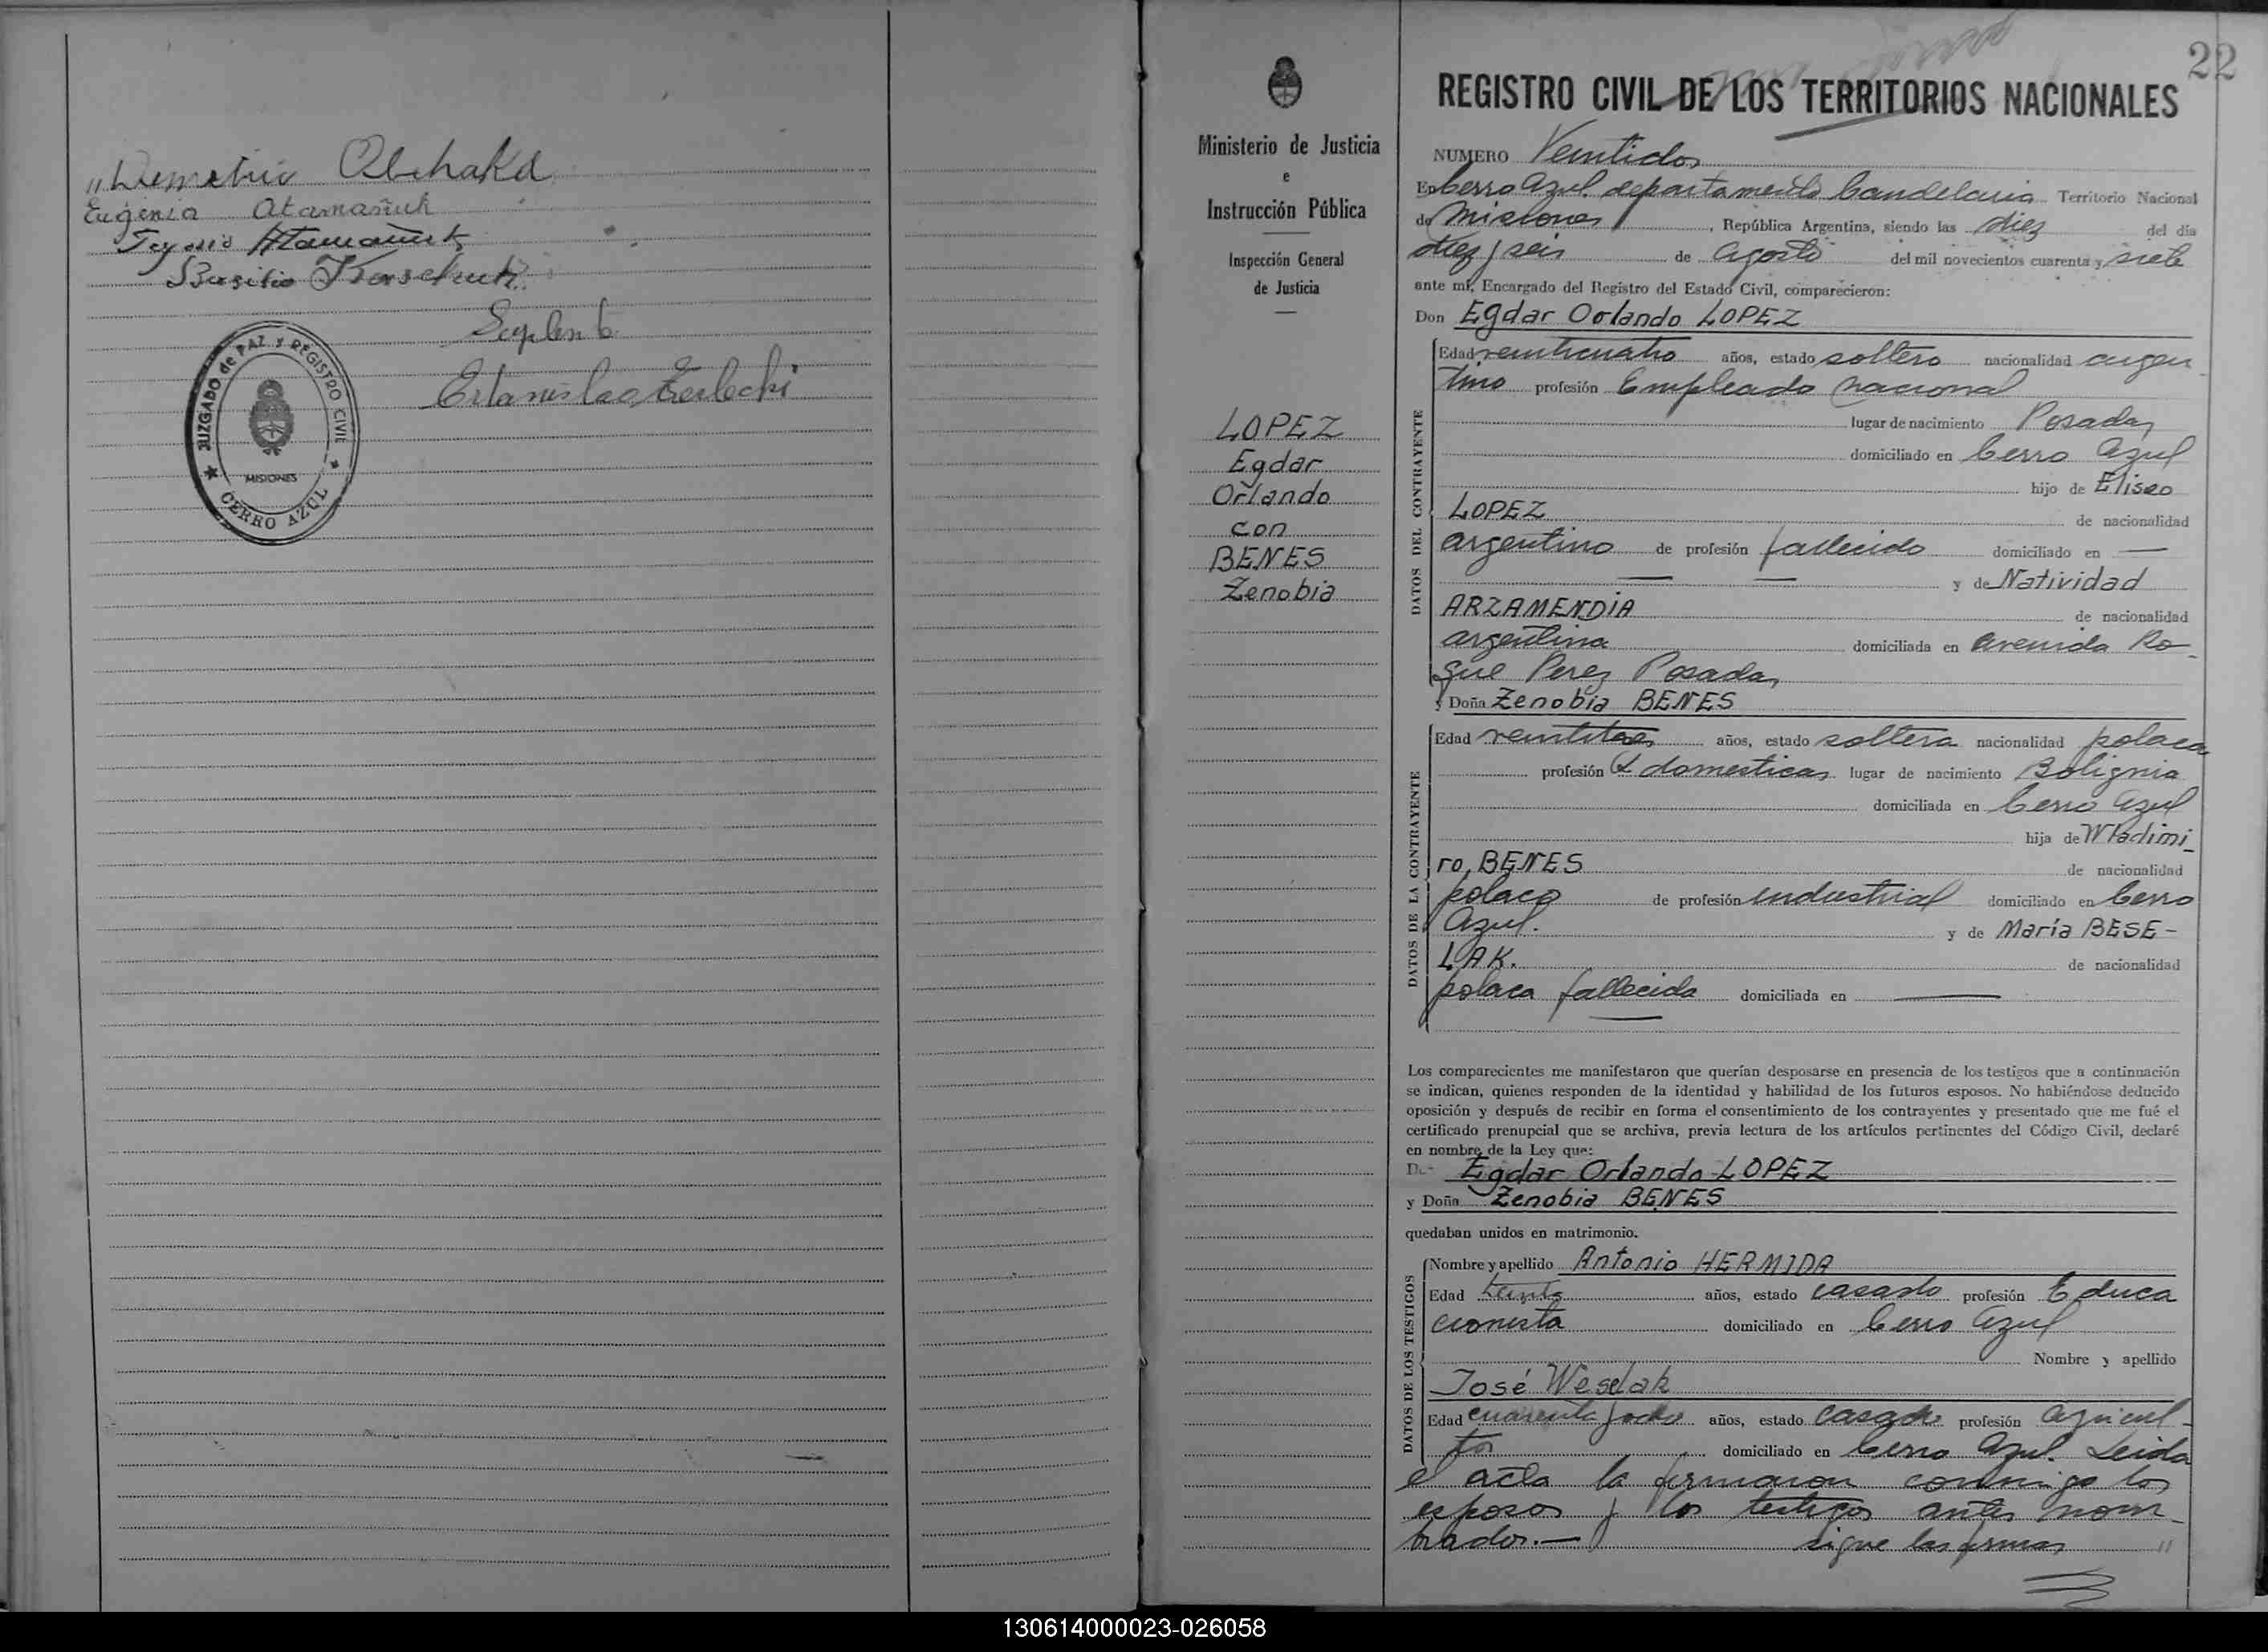 "Demetrio Olchaka
Eugenia Atamañuk
Atamañuk
Basilio
Suplente
Estanislao Terlecki
JUZGADO de PAZ Y REGISTRO CIVIL
MISIONES
CERRO AZUL
22
Ministerio de Justicia
e
Instrucción Pública
Inspección General
de Justicia
LOPEZ
Egdar
Orlando
con
BENES
Zenobia
REGISTRO CIVIL DE LOS TERRITORIOS NACIONALES
NUMERO Veintidos
En Cerro Azul departamento Candelaria Territorio Nacional
de Misiones, República Argentina, siendo las diez del día
diez y seis de agosto del mil novecientos cuarenta y siete
ante mí, Encargado del Registro del Estado Civil, comparecieron:
Don Egdar Orlando LOPEZ
DATOS DEL CONTRAYENTE
Edad veinticuatro años, estado soltero nacionalidad argen
tino profesión Empleado nacional
lugar de nacimiento Posadas
domiciliado en Cerro Azul
hijo de Eliseo
LOPEZ de nacionalidad
argentino de profesión fallecido domiciliado en —
— — y de Natividad
ARZAMENDIA de nacionalidad
argentina domiciliada en avenida Ro-
que Perez Posadas
y Doña Zenobia BENES
DATOS DE LA CONTRAYENTE
Edad veintitres años, estado soltera nacionalidad polaca
profesión Q. domesticas lugar de nacimiento Bolignia
domiciliada en Cerro Azul
hija de Wladimi-
ro BENES de nacionalidad
polaco de profesión industrial domiciliado en Cerro
Azul. y de María BESE-
LAK. de nacionalidad
polaca fallecida domiciliada en —
Los comparecientes me manifestaron que querían desposarse en presencia de los testigos que a continuación
se indican, quienes responden de la identidad y habilidad de los futuros esposos. No habiéndose deducido
oposición y después de recibir en forma el consentimiento de los contrayentes y presentado que me fué el
certificado prenupcial que se archiva, previa lectura de los artículos pertinentes del Código Civil, declaré
en nombre de la Ley que:
Don Egdar Orlando LOPEZ
y Doña Zenobia BENES
quedaban unidos en matrimonio.
DATOS DE LOS TESTIGOS
Nombre y apellido Antonio HERMIDA
Edad treinta años, estado casado profesión Educa
cionista domiciliado en Cerro Azul
Nombre y apellido
José Weselak
Edad cuarenta y ocho años, estado casado profesión agricul-
tor domiciliado en Cerro Azul. Leida
el acta la firmaron conmigo los
esposos y los testigos antes nom-
brados.— sigue las firmas "
130614000023-026058